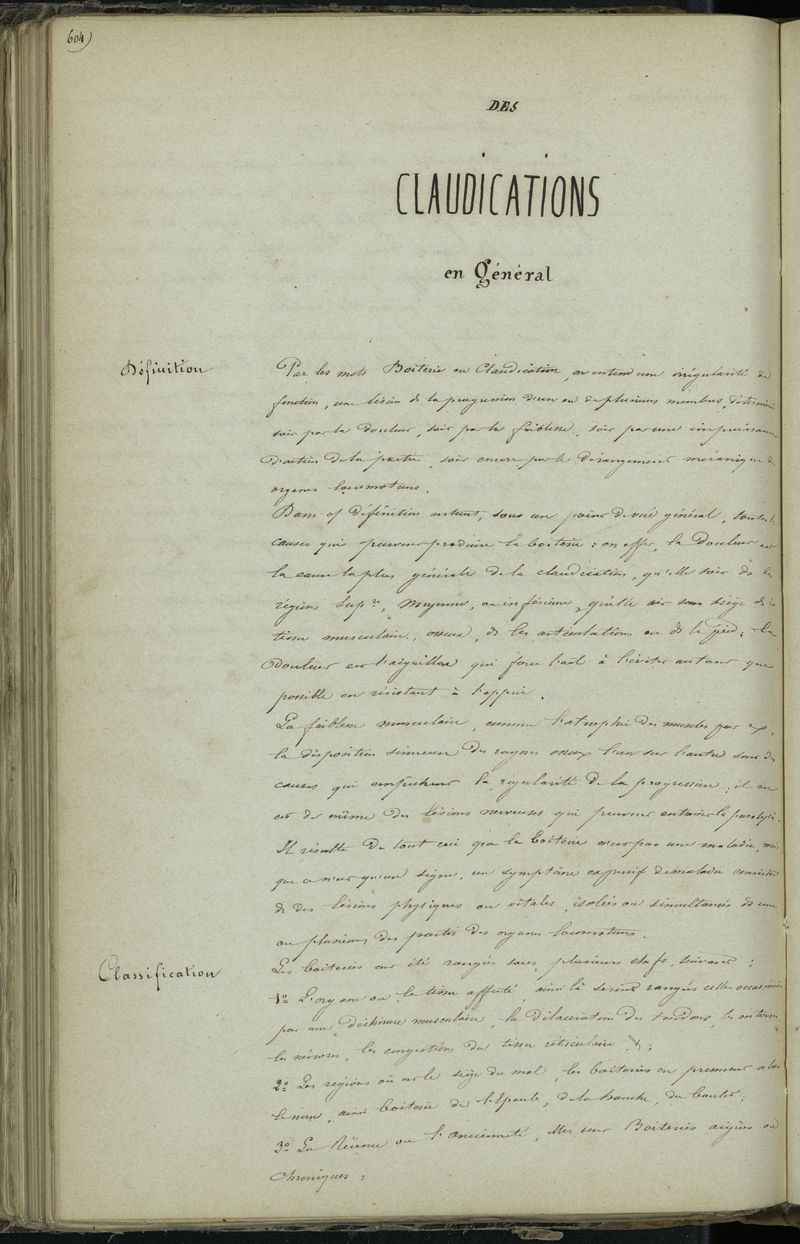 604)
DES
CLAUDICATIONS
en Général
Définition
Par les mots Boiterie ou Claudication, on entend une irrégularité de
fonction, une lésion de la progression d'un ou de plusieurs membres, déterminée
soit par la douleur, soit par la faiblesse, soit par une impuissance
d'action de la partie, soit encore par le dérangement mécanique des
organes locomoteurs.
Dans cette définition entrent, sous un point de vue général, toutes les
causes qui peuvent produire la boiterie : en effet, la Douleur est
la cause la plus générale de la claudication, qu'elle soit ds les
régions Supre, Moyenne, ou inférieure, qu'elle ait son siège ds le
tissu musculaire, osseux, ds les articulations ou ds le pied; la
Douleur est l'aiguillon qui force l'aal à l'éviter autant que
possible en résistant à l'appui.
La faiblesse musculaire, comme l'atrophie des muscles par ex,
la disposition vicieuse des rayons osseux l'un sur l'autre sont des
causes qui empêchent la régularité de la progression; il en
est de même des lésions nerveuses qui peuvent entraîner la paralysie.
Il résulte de tout ceci que la boiterie n'est pas une maladie, mais
que ce n'est qu'un signe, un symptôme expressif de maladie consistant
ds des lésions physiques ou vitales, isolées ou simultanées ds une
ou plusieurs des parties des organes locomoteurs.
Classification
Les boiteries ont été rangées sous plusieurs chefs, suivant :
1º L'organe ou le tissu affecté, ainsi là seront rangées celles occasionnées
par une déchirure musculaire, la dilacération des tendons, les entorses,
les névroses, les congestions du tissu réticulaire &;
2º Les régions où est le siège du mal, les boiteries en prennent alors
le nom, ainsi boiterie de l'Epaule, de la hanche, du boulet;
3º La Récence ou l'Ancienneté, elles sont Boiteries aigües ou
chroniques;